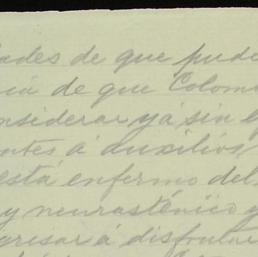 ades de que pude
ia de que Colom
nsiderar yá sin e
ntes á auxilios
está enfermo del
y neurasténico y
gresar á disfrutar